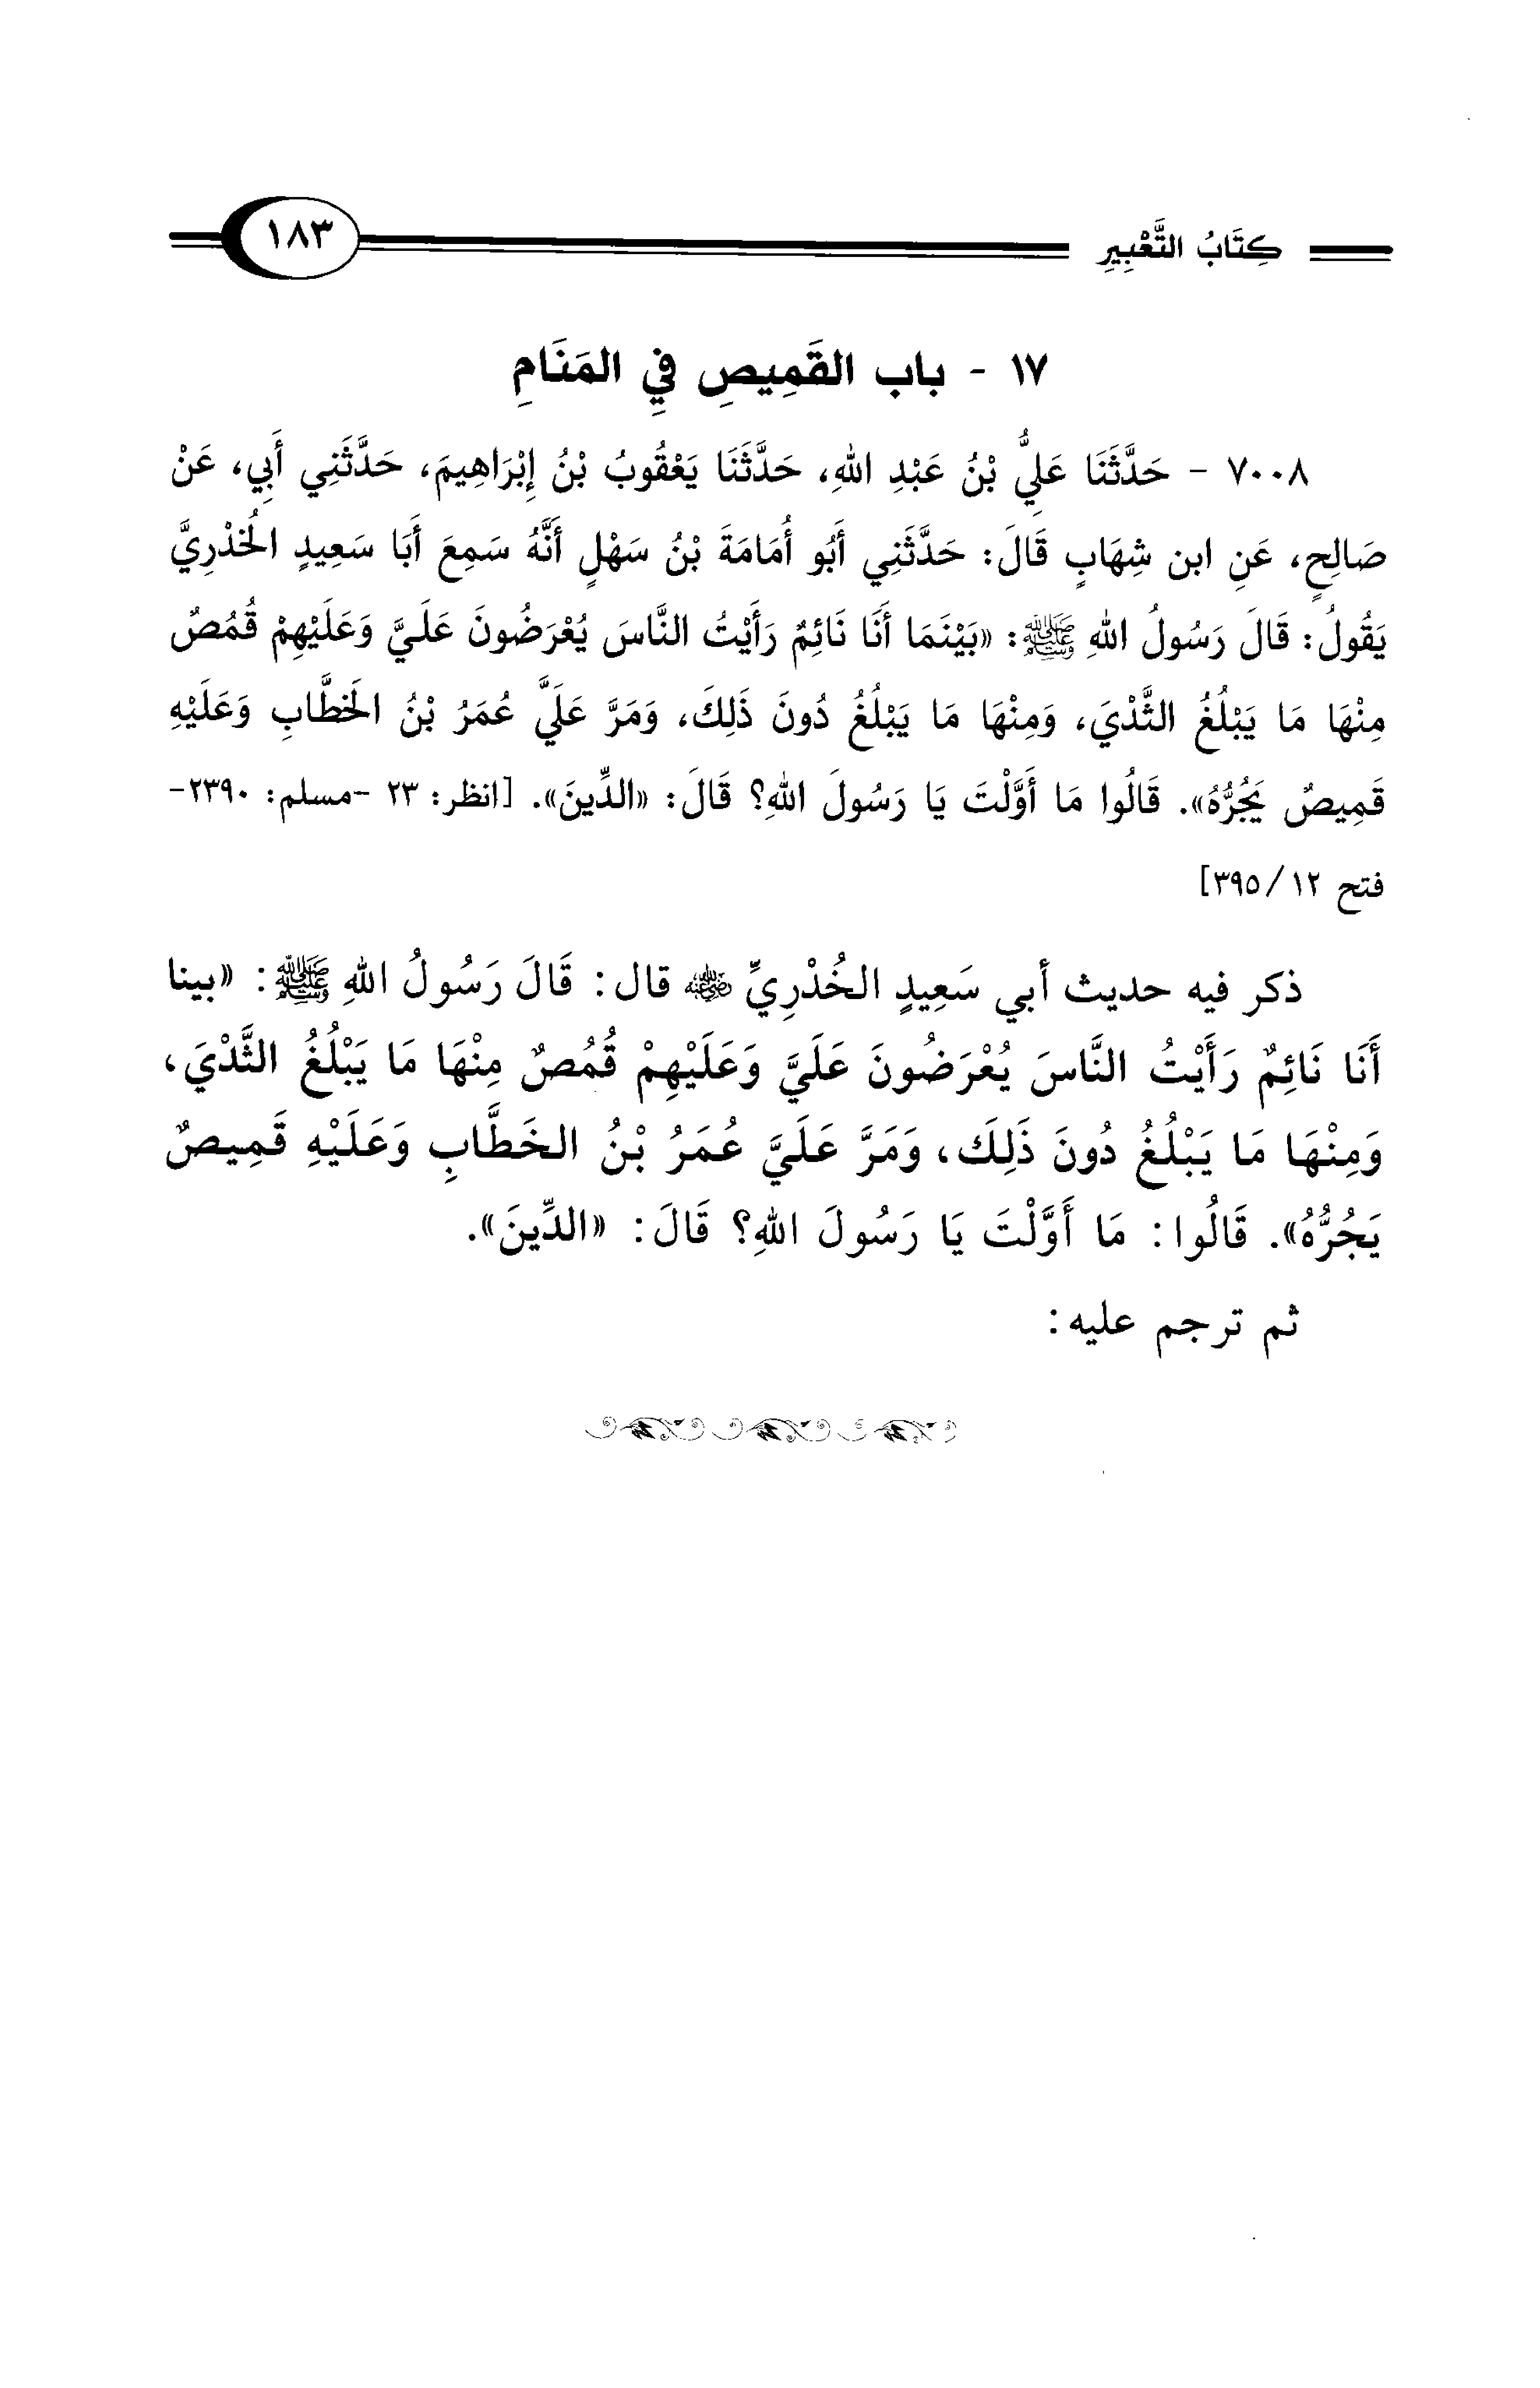 كِتَابُ التَّعْبِيرِ ١٨٣
١٧ - باب القَمِيصِ فِي المَنَامِ
٧٠٠٨ - حَدَّثَنَا عَلِيُّ بْنُ عَبْدِ اللهِ، حَدَّثَنَا يَعْقُوبُ بْنُ إِبْرَاهِيمَ، حَدَّثَنِي أَبِي، عَنْ
صَالِحٍ، عَنِ ابن شِهَابٍ قَالَ: حَدَّثَنِي أَبُو أُمَامَةَ بْنُ سَهْلٍ أَنَّهُ سَمِعَ أَبَا سَعِيدٍ الخُدْرِيَّ
يَقُولُ: قَالَ رَسُولُ اللهِ ﷺ: «بَيْنَمَا أَنَا نَائِمٌ رَأَيْتُ النَّاسَ يُعْرَضُونَ عَلَيَّ وَعَلَيْهِمْ قُمُصٌ
مِنْهَا مَا يَبْلُغُ الثَّدْيَ، وَمِنْهَا مَا يَبْلُغُ دُونَ ذَلِكَ، وَمَرَّ عَلَيَّ عُمَرُ بْنُ الخَطَّابِ وَعَلَيْهِ
قَمِيصٌ يَجُرُّهُ». قَالُوا مَا أَوَّلْتَ يَا رَسُولَ اللهِ؟ قَالَ: «الدِّينَ». [انظر: ٢٣ -مسلم: ٢٣٩٠-
فتح ١٢/ ٣٩٥]
ذكر فيه حديث أبي سَعِيدٍ الخُدْرِيِّ رضي الله عنه قال: قَالَ رَسُولُ اللهِ ﷺ: «بينا
أَنَا نَائِمٌ رَأَيْتُ النَّاسَ يُعْرَضُونَ عَلَيَّ وَعَلَيْهِمْ قُمُصٌ مِنْهَا مَا يَبْلُغُ الثَّدْيَ،
وَمِنْهَا مَا يَبْلُغُ دُونَ ذَلِكَ، وَمَرَّ عَلَيَّ عُمَرُ بْنُ الخَطَّابِ وَعَلَيْهِ قَمِيصٌ
يَجُرُّهُ». قَالُوا: مَا أَوَّلْتَ يَا رَسُولَ اللهِ؟ قَالَ: «الدِّينَ».
ثم ترجم عليه: